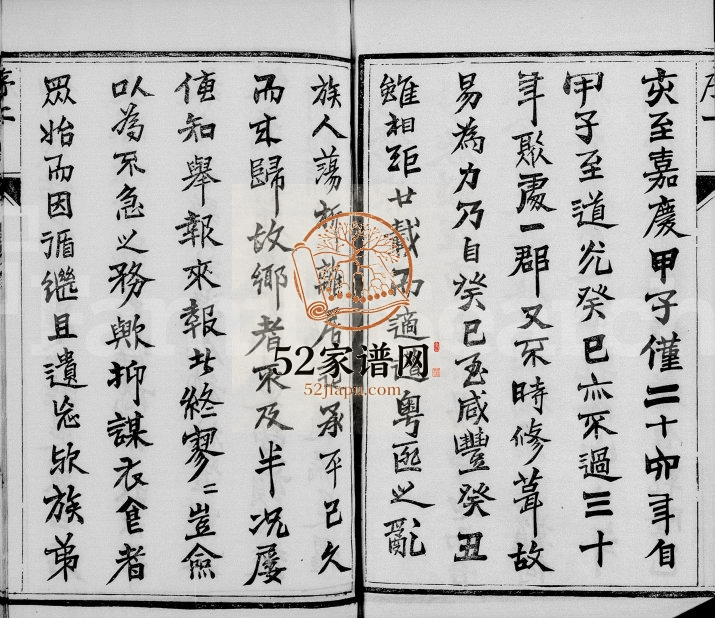 序一
亥至嘉慶甲子僅二十卯年自
甲子至道光癸巳亦不過三十
年聚處一郡又不時修葺故
易為力乃自癸巳至咸豐癸丑
雖相距廿載而適遭粤匪之亂
族人蕩析離居承平已久
而未歸故鄉者不及半况屡
知舉報來報者終寥〻豈僉
以為不急之務歟抑謀衣食者
眾始而因循繼且遺忘欤族弟
序二
52家谱网
52jiapu.com